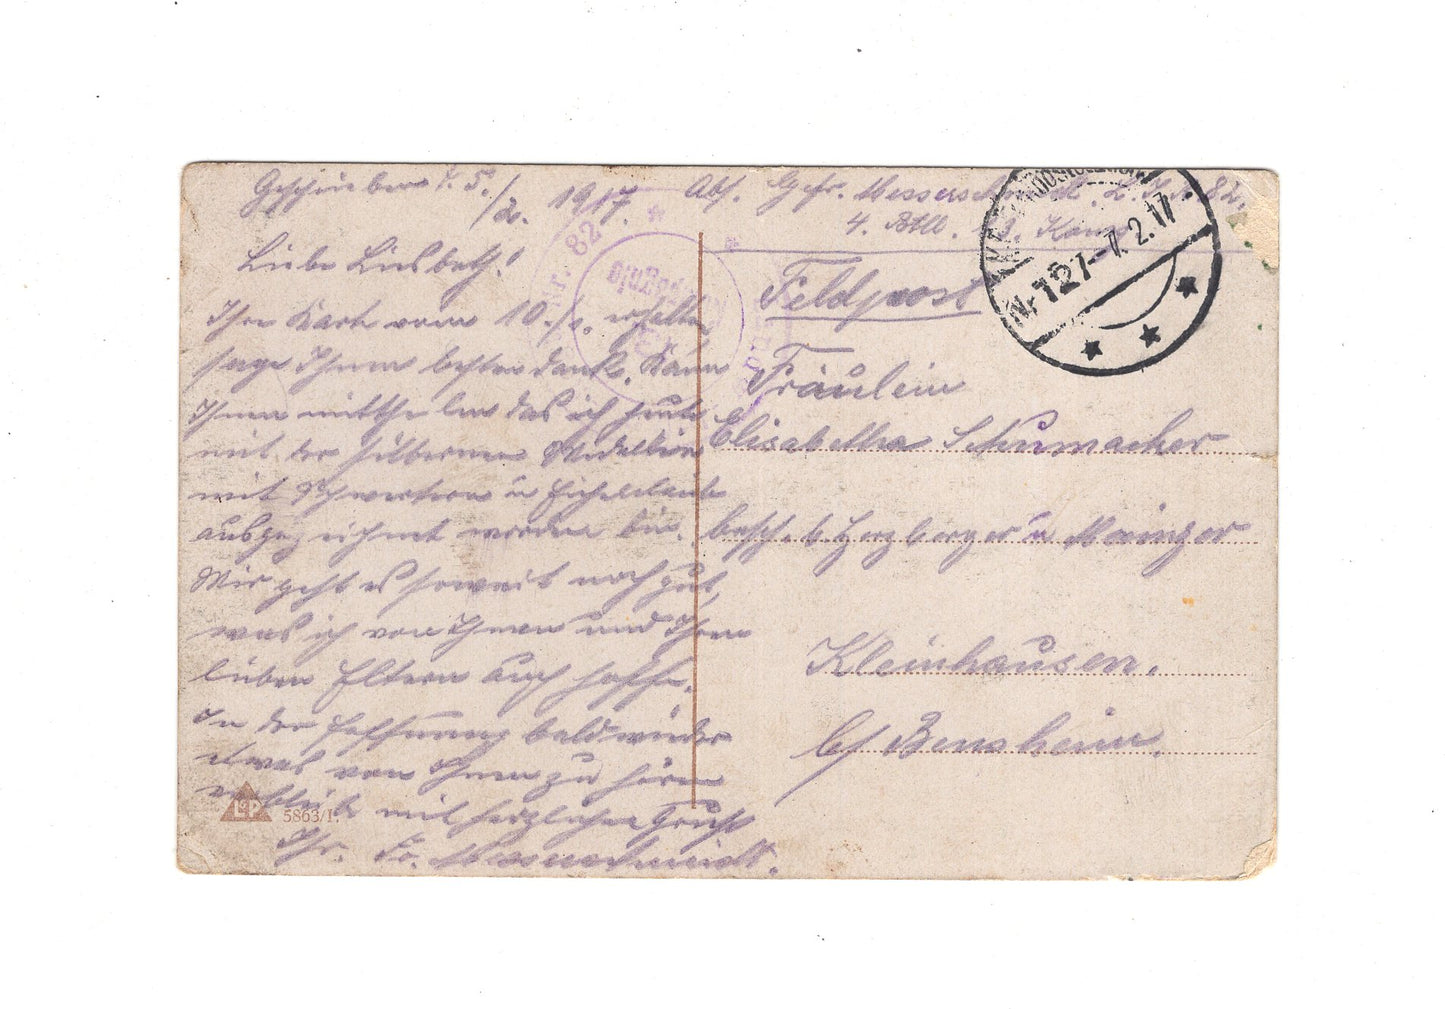 Geschrieben d. 5./2. 1917.
Abs. Gefr. Messerschmidt. L.I.R. 82.
4. Battl. 13. Komp.
Liebe Liesbeth!
Ihre Karte vom 10./1. erhalten
sage Ihnen besten dank. Kann
Ihnen mittheilen das ich heute
mit der silbernen Medallion
mit Schwertern u Eichenlaub
ausgezeichnet worden bin.
Mir geht es soweit noch gut,
was ich von Ihnen und Ihren
lieben Eltern auch hoffe.
In der Hoffnung bald wieder
etwas von Ihnen zu hören
verbleibe mit herzlichen Gruß
Ihr. Fr. Messerschmidt.
Feldpost
Fräulein
Elisabetha Schumacher
besch. b. Herzberger u Mainzer
Kleinhausen.
b/ Bensheim.
Nr. 82
N-127-7.2.17
L&P 5863/I.